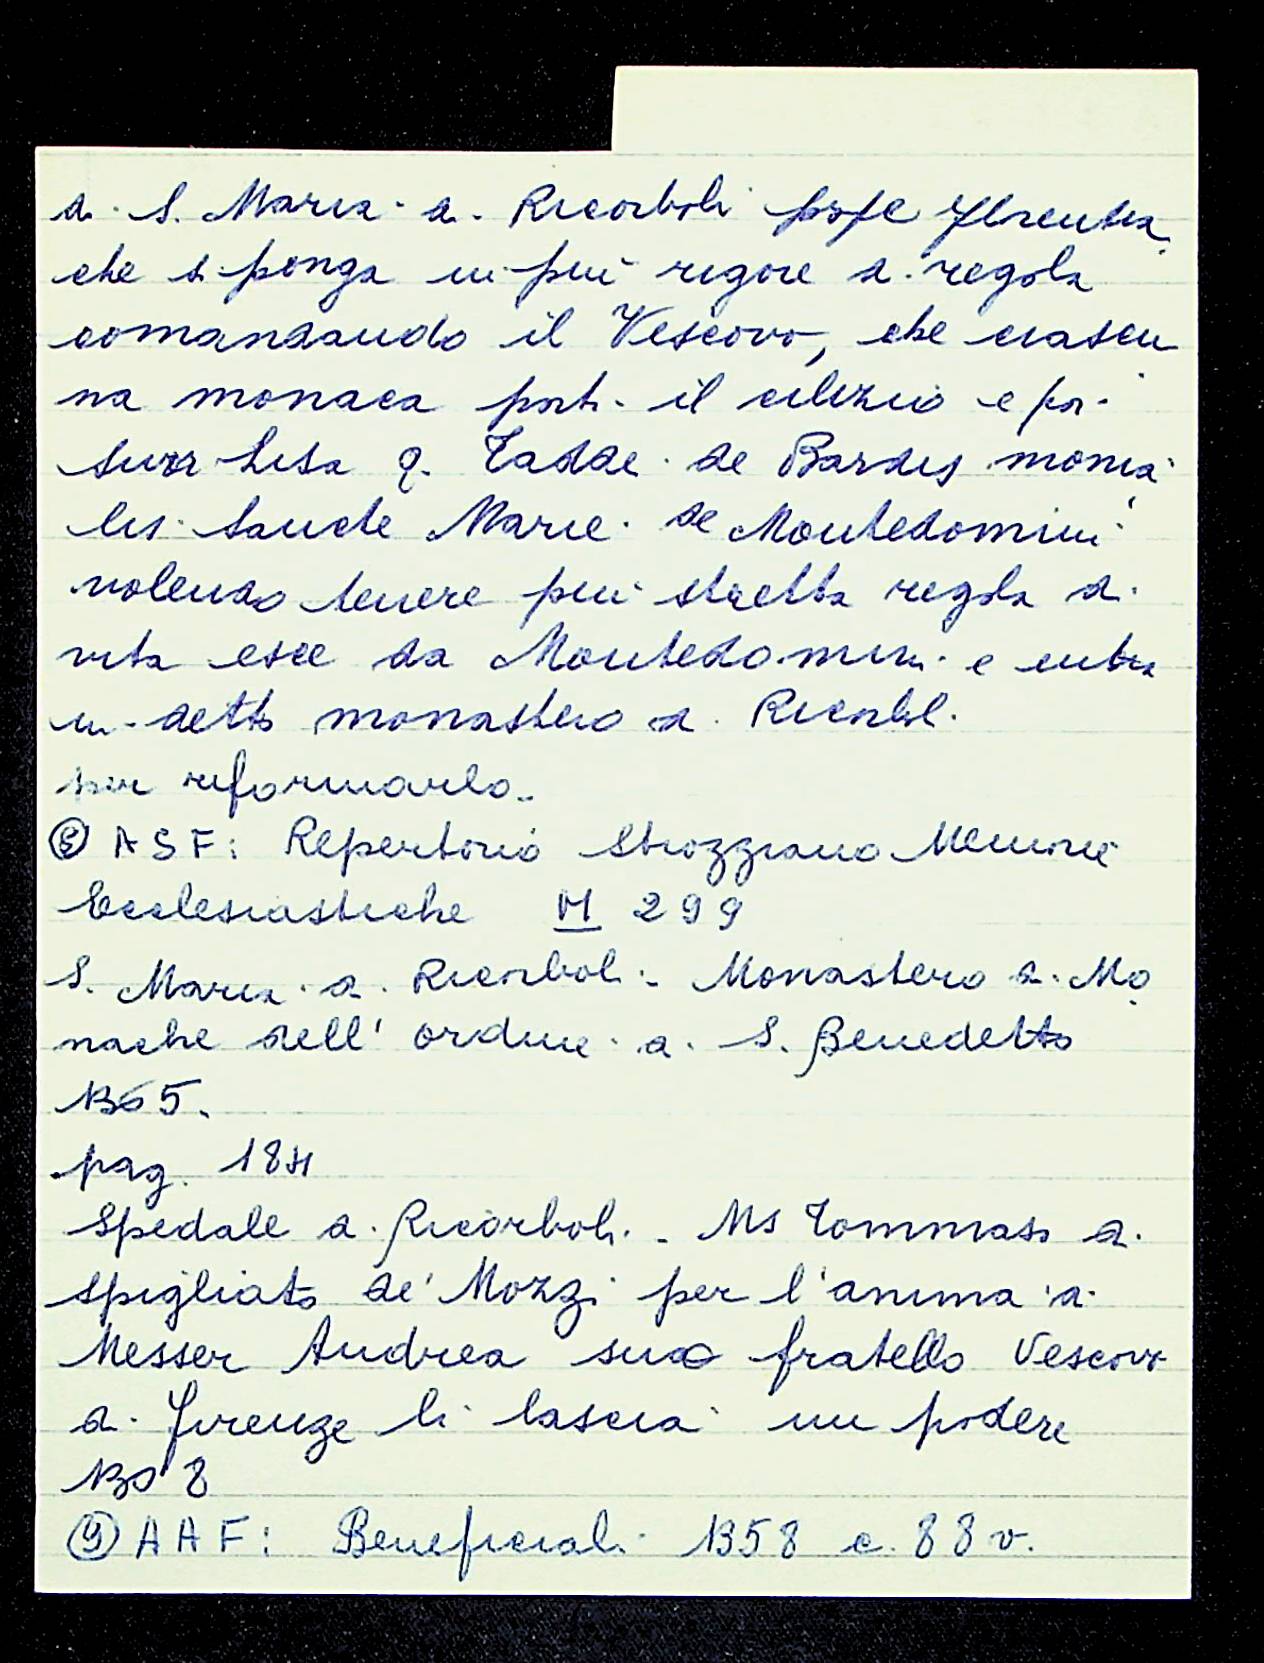 di S. Maria a Ricorboli prope Florentia
che si ponga in più rigore di regola
comandando il Vescovo, che ciascu
na monaca porti il cilizio e poi
suor Lisa q. Taddei de Bardis monia
lis Sancte Marie de Montedomini
volendo tenere più stretta regola di
vita esce da Montedomini e entra
in detto monastero di Ricorboli
per riformarlo.
ASF: Repertorio Strozziano Memorie
Ecclesiastiche 299
S. Maria a Ricorboli. Monastero di Mo
nache dell'ordine di S. Benedetto
pag.
Spedale di Ricorboli. Ms Tommaso di
Spigliato de' Mozzi per l'anima di
Messer Andrea suo fratello Vescovo
di Firenze li lascia un podere
AAF: Beneficiali 1358 c. 88 v.